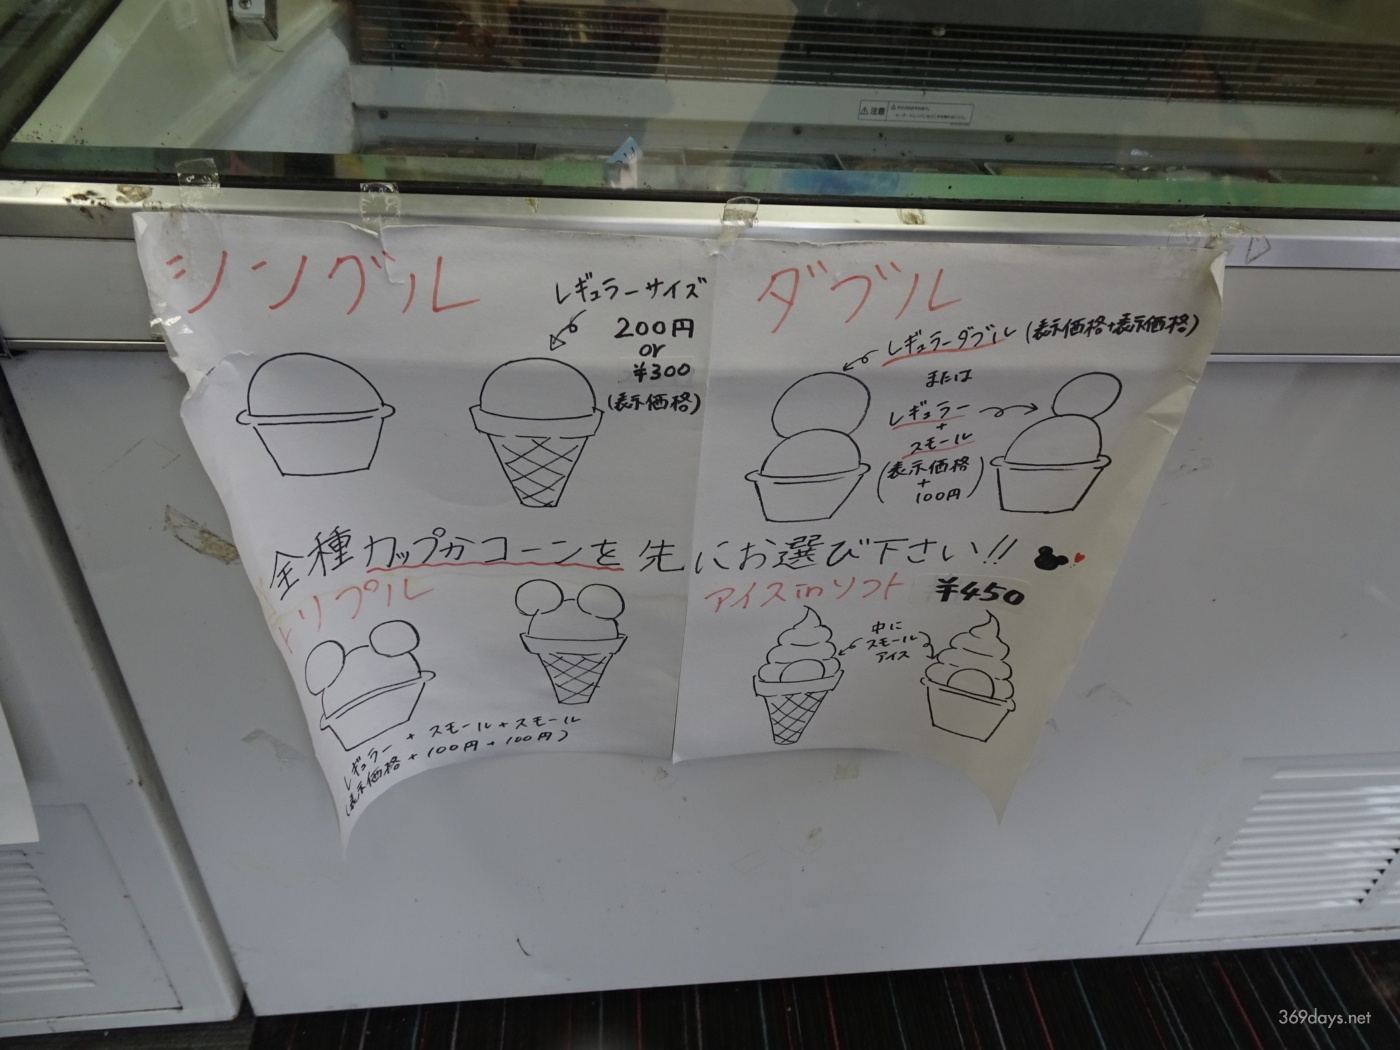 シングル
レギュラーサイズ
200円
or
¥300
(表示価格)
ダブル
レギュラーダブル (表示価格+表示価格)
または
レギュラー
+
スモール
(表示価格
+
100円)
全種カップかコーンを先にお選び下さい!!
トリプル
レギュラー + スモール + スモール
(表示価格 + 100円 + 100円)
アイスinソフト ¥450
中に
スモール
アイス
注意
369days.net